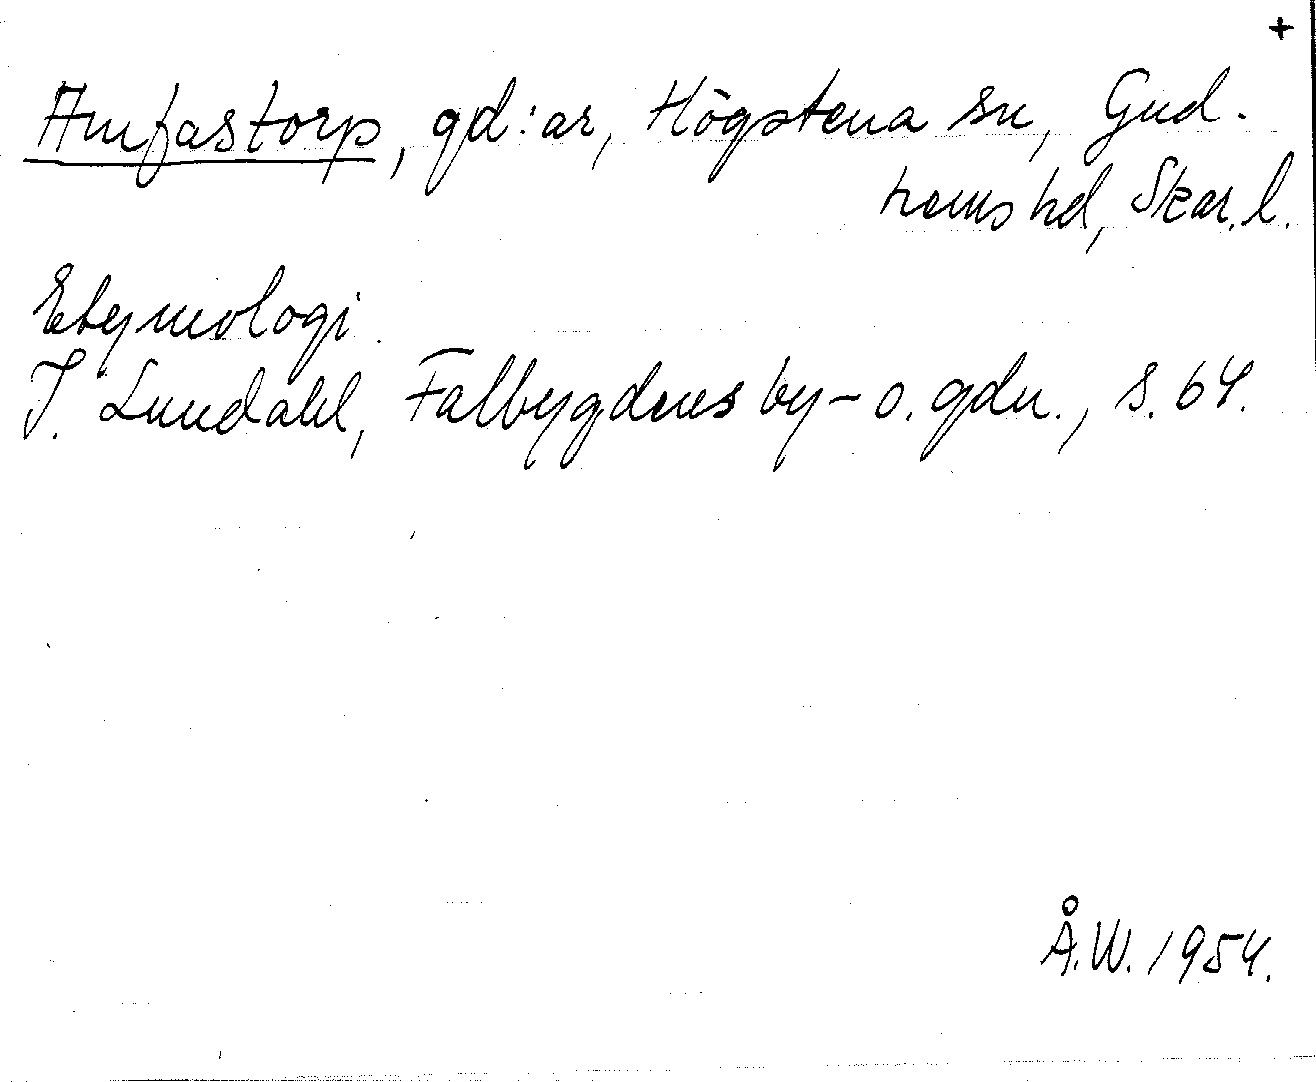 +
Amfastorp, gd:ar, Högstena sn, Gud-
hems hd, Skar. l.
Etymologi.
I. Lundahl, Falbygdens by- o. gdn., s. 64.
Å.W. 1954.